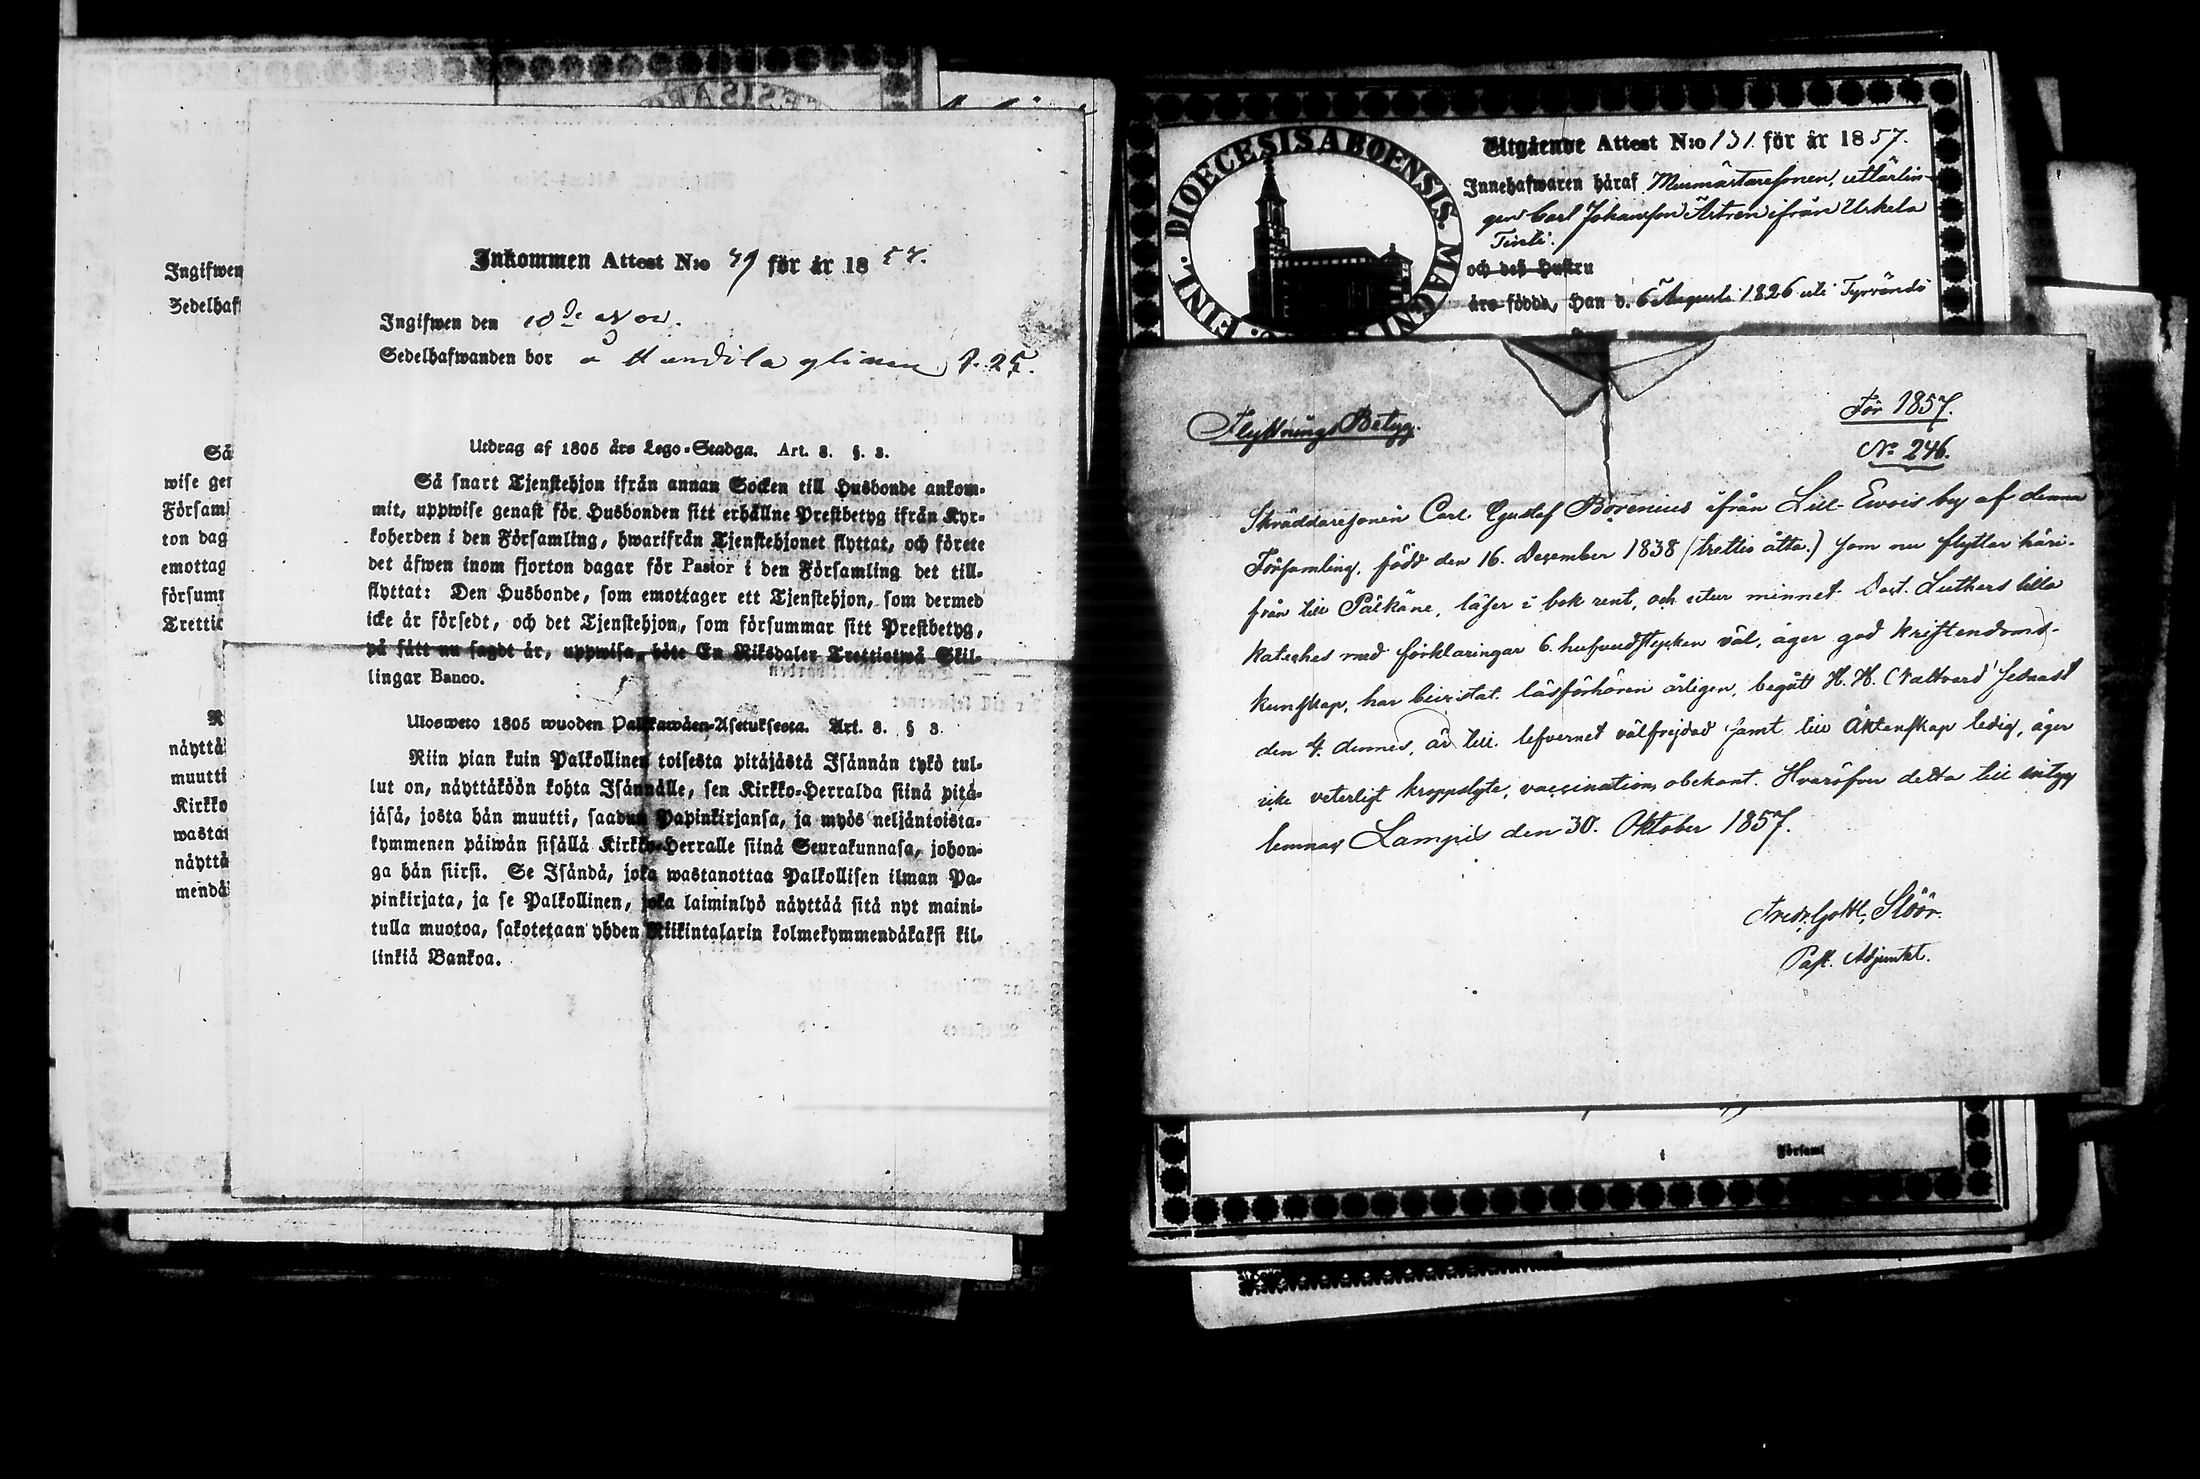 Ingifwen
Sedelhaf
Så
wise gen
Församl
ton dag
emottag
försumm
Trettio
N
näyttä
muutti
Kirkko
wastan
näyttä
mendä
Inkommen Attest N:o 49 för år 1857.
Ingifwen den 10de Nov.
Sedelhafwanden bor å p. 25.
Utdrag af 1805 års Lego-Stadga. Art. 8. §. 3.
Så snart Tjenstehjon ifrån annan Socken till Husbonde ankom-
mit, uppwise genast för Husbonden sitt erhållne Prestbetyg ifrån Kyr-
koherden i den Församling, hwarifrån Tjenstehjonet flyttat, och förete
det äfwen inom fjorton dagar för Pastor i den Församling det till-
flyttat: Den Husbonde, som emottager ett Tjenstehjon, som dermed
icke är försedt, och det Tjenstehjon, som försummar sitt Prestbetyg,
på sätt nu sagdt är, uppwisa, böte En Riksdaler Trettiotwå Skil-
lingar Banco.
Ulosweto 1805 wuoden Palkkawäen-Asetuksesta. Art. 8. § 3.
Niin pian kuin Palkollinen toisesta pitäjästä Isännän tykö tul-
lut on, näyttäköön kohta Isännälle, sen Kirkko-Herralda siinä pitä-
jäsä, josta hän muutti, saadun Papinkirjansa, ja myös neljäntoista-
kymmenen päiwän sisällä Kirkko-Herralle siinä Seurakunnasa, johon-
ga hän siirsi. Se Isändä, joka wastanottaa Palkollisen ilman Pa-
pinkirjata, ja se Palkollinen, joka laiminlyö näyttää sitä nyt maini-
tulla muotoa, sakotetaan yhden Riikintalarin kolmekymmendäkaksi kil-
linkiä Bankoa.
DIOECESIS ABOENSIS. MAGNI FINL.
Utgående Attest N:o 131 för år 1857.
Innehafwaren häraf Murmästaresonen, utlärlin-
gen Carl Johansson Åström ifrån Urkela
och deß Hustru
äro födde, Han d. 6 Augusti 1826 uti Tyrvändö
Flyttnings Betyg.
För 1857.
No 246.
Skräddaresonen Carl Gustaf Borenius ifrån Lill-Evois by af denna
Församling, född den 16. December 1838 (trettio åtta.) som nu flyttar häri-
från till Pälkäne, läser i bok rent, och utur minnet Doct. Luthers lilla
kateches med förklaringar 6. hufvudstycken väl, äger god kristendoms-
kunskap, har bevistat läsförhören årligen, begått H. H. Nattvard sednast
den 4. dennes, är till lefvernet välfrejdad samt till Äktenskap ledig, äger
icke veterligt kroppslyte, vaccination obekant. Hvaröfver detta till intyg
lemnas Lampis den 30. Oktober 1857.
Fredr. Gottl. Stöör.
Past. Adjunct.
Församl